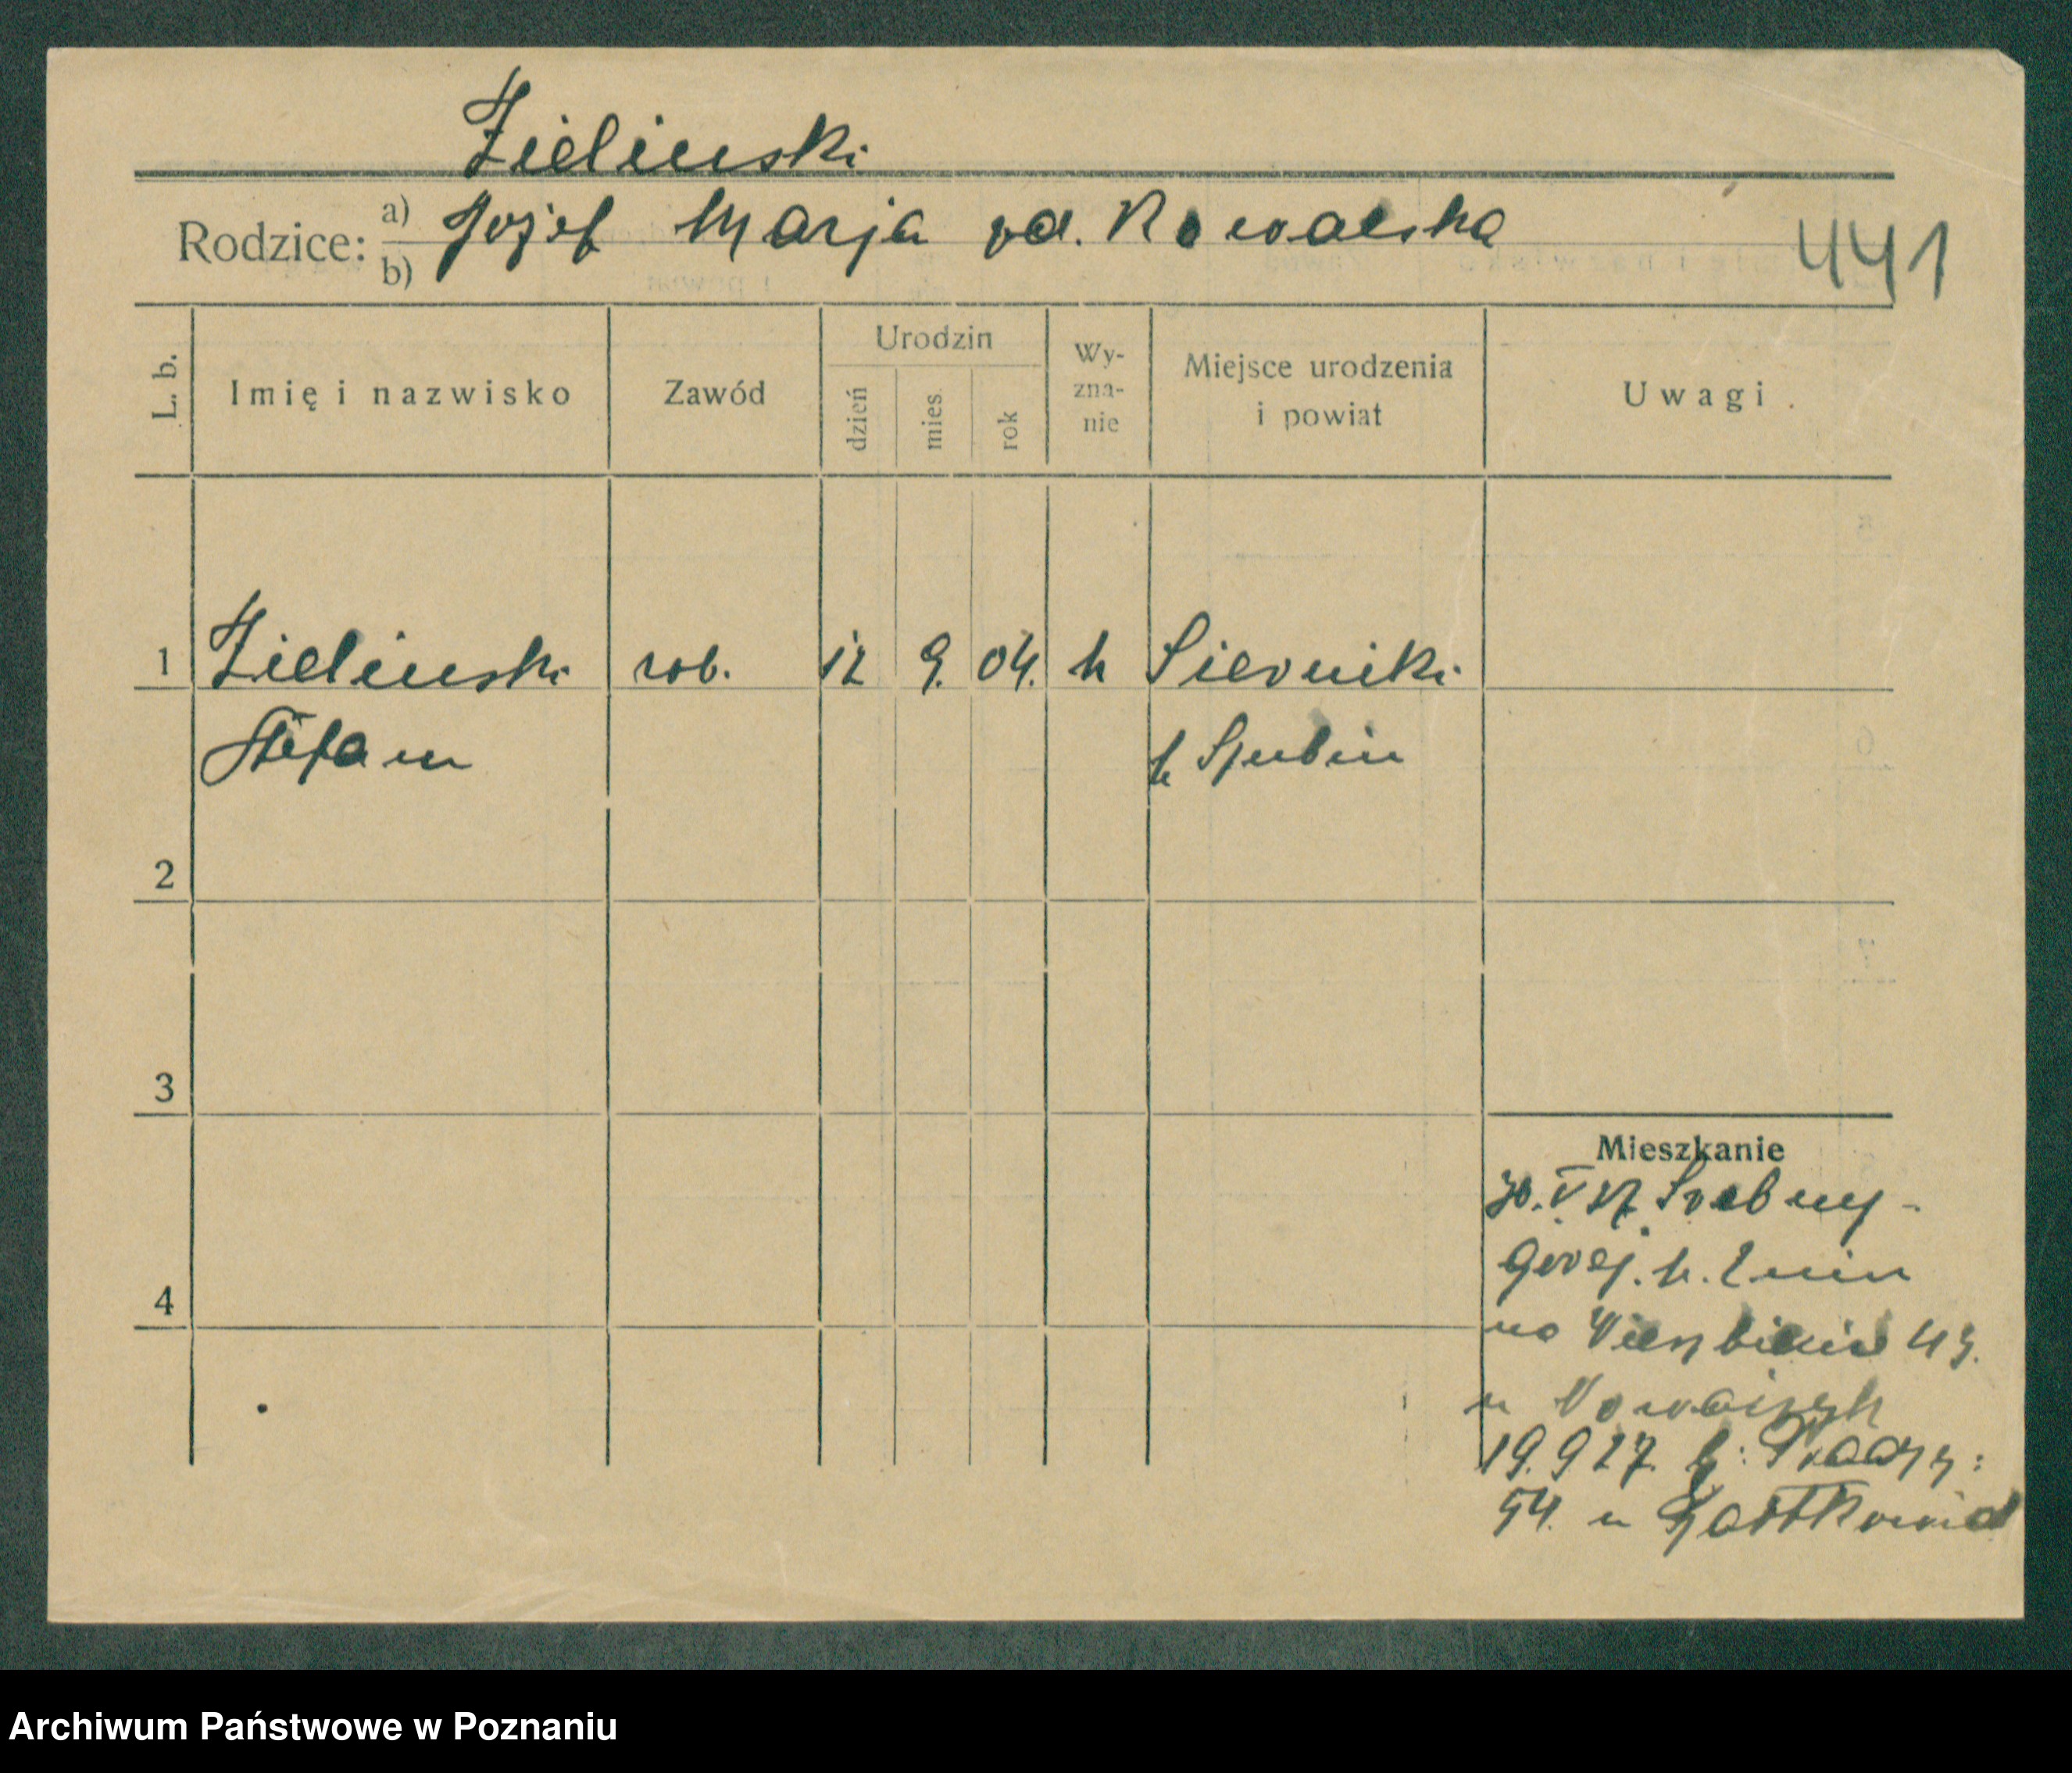 Zielinski
Rodzice: a) Józef Marja rd. Kowalska
b)
441
L. b.
Imię i nazwisko
Zawód
Urodzin
dzień
mies.
rok
Wy-
zna-
nie
Miejsce urodzenia
i powiat
Uwagi.
1 Zielinski rob. 12 9. 04. k Sierniki
Stefan k Szubin
2
3
4
Mieszkanie
30. V 27 Srebrny-
Górej. k. Znin
na 43.
u
19.9 27. Pradzy:
54. u
Archiwum Państwowe w Poznaniu